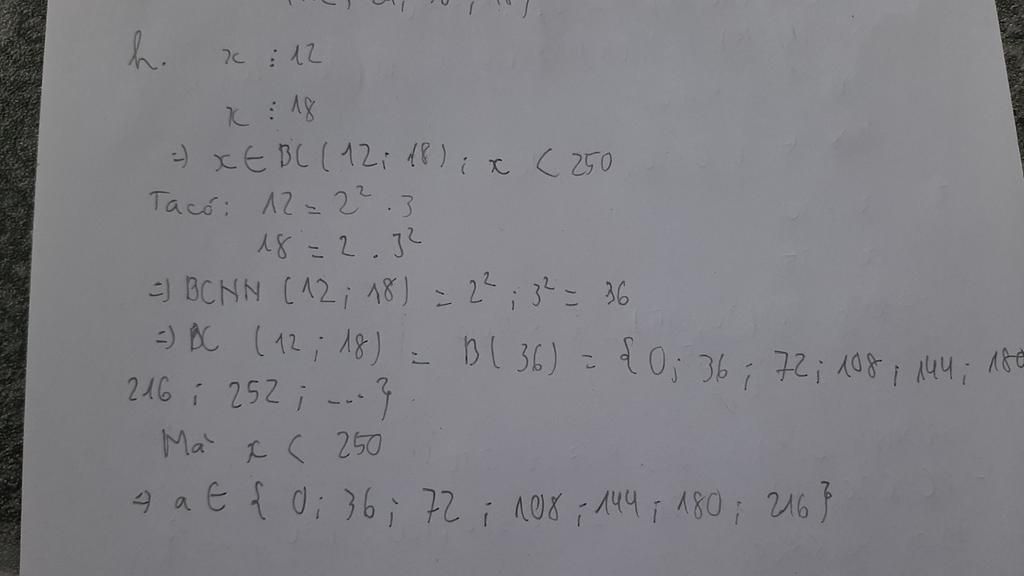 h. x ⋮ 12
x ⋮ 18
=) x ∈ BC ( 12 ; 18 ) ; x < 250
Ta có : 12 = 2² . 3
18 = 2 . 3²
=) BCNN ( 12 ; 18 ) = 2² ; 3² = 36
=) BC ( 12 ; 18 ) = B ( 36 ) = { 0 ; 36 ; 72 ; 108 ; 144 ; 180
216 ; 252 ; ... }
Mà x < 250
=) a ∈ { 0 ; 36 ; 72 ; 108 ; 144 ; 180 ; 216 }